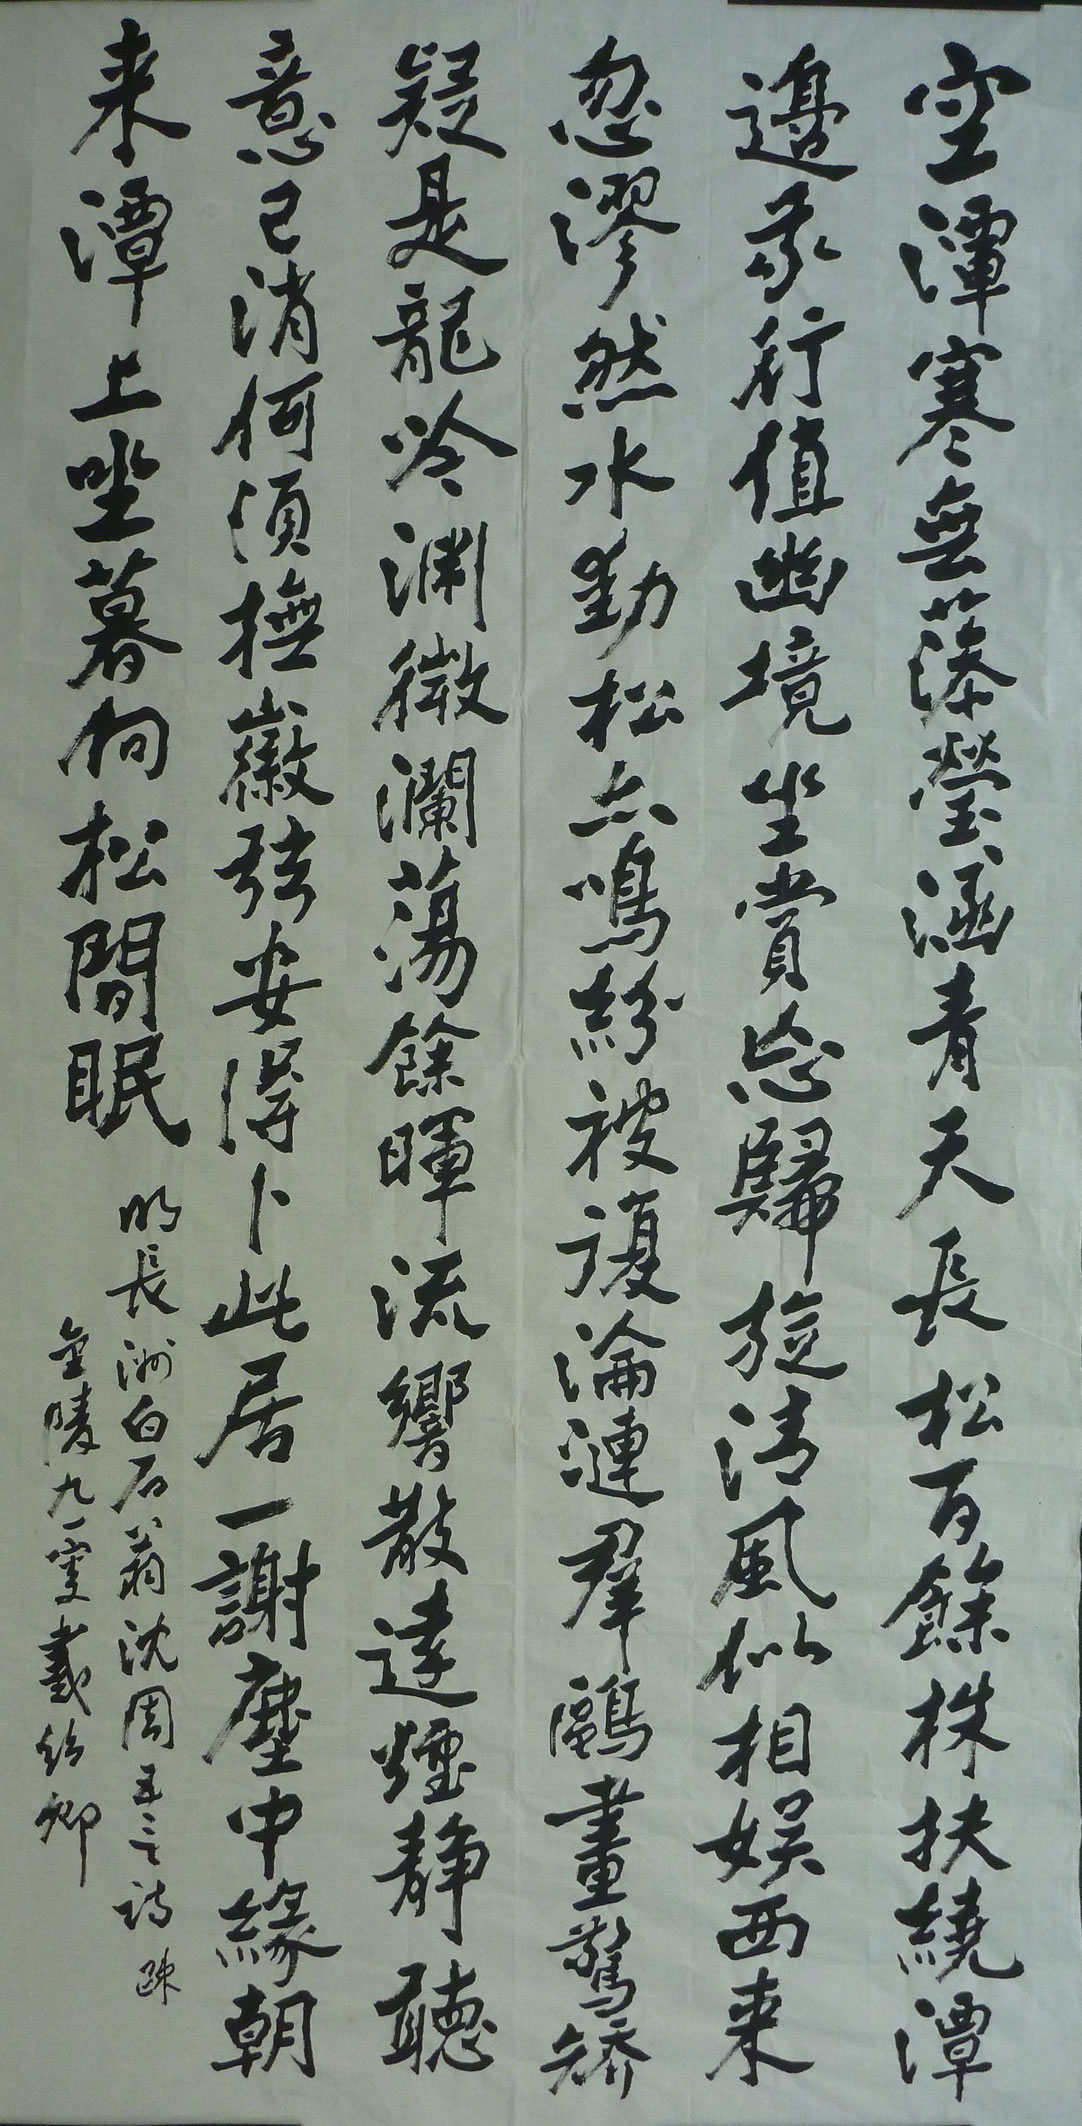 空潭寒無藻瑩涵青天長松百餘株扶繞潭
邊我行值幽境坐賞忘歸旋清風似相娛西来
忽漻然水動松亦鳴紛披復淪漣群鷗盡驚矯
疑是龍冷淵微瀾蕩餘暉流響散遠煙静聽
意已消何須撫徽弦安得卜此居一謝塵中緣朝
来潭上坐暮向松間眠
明長洲白石翁沈周五言詩
金陵九一叟戴